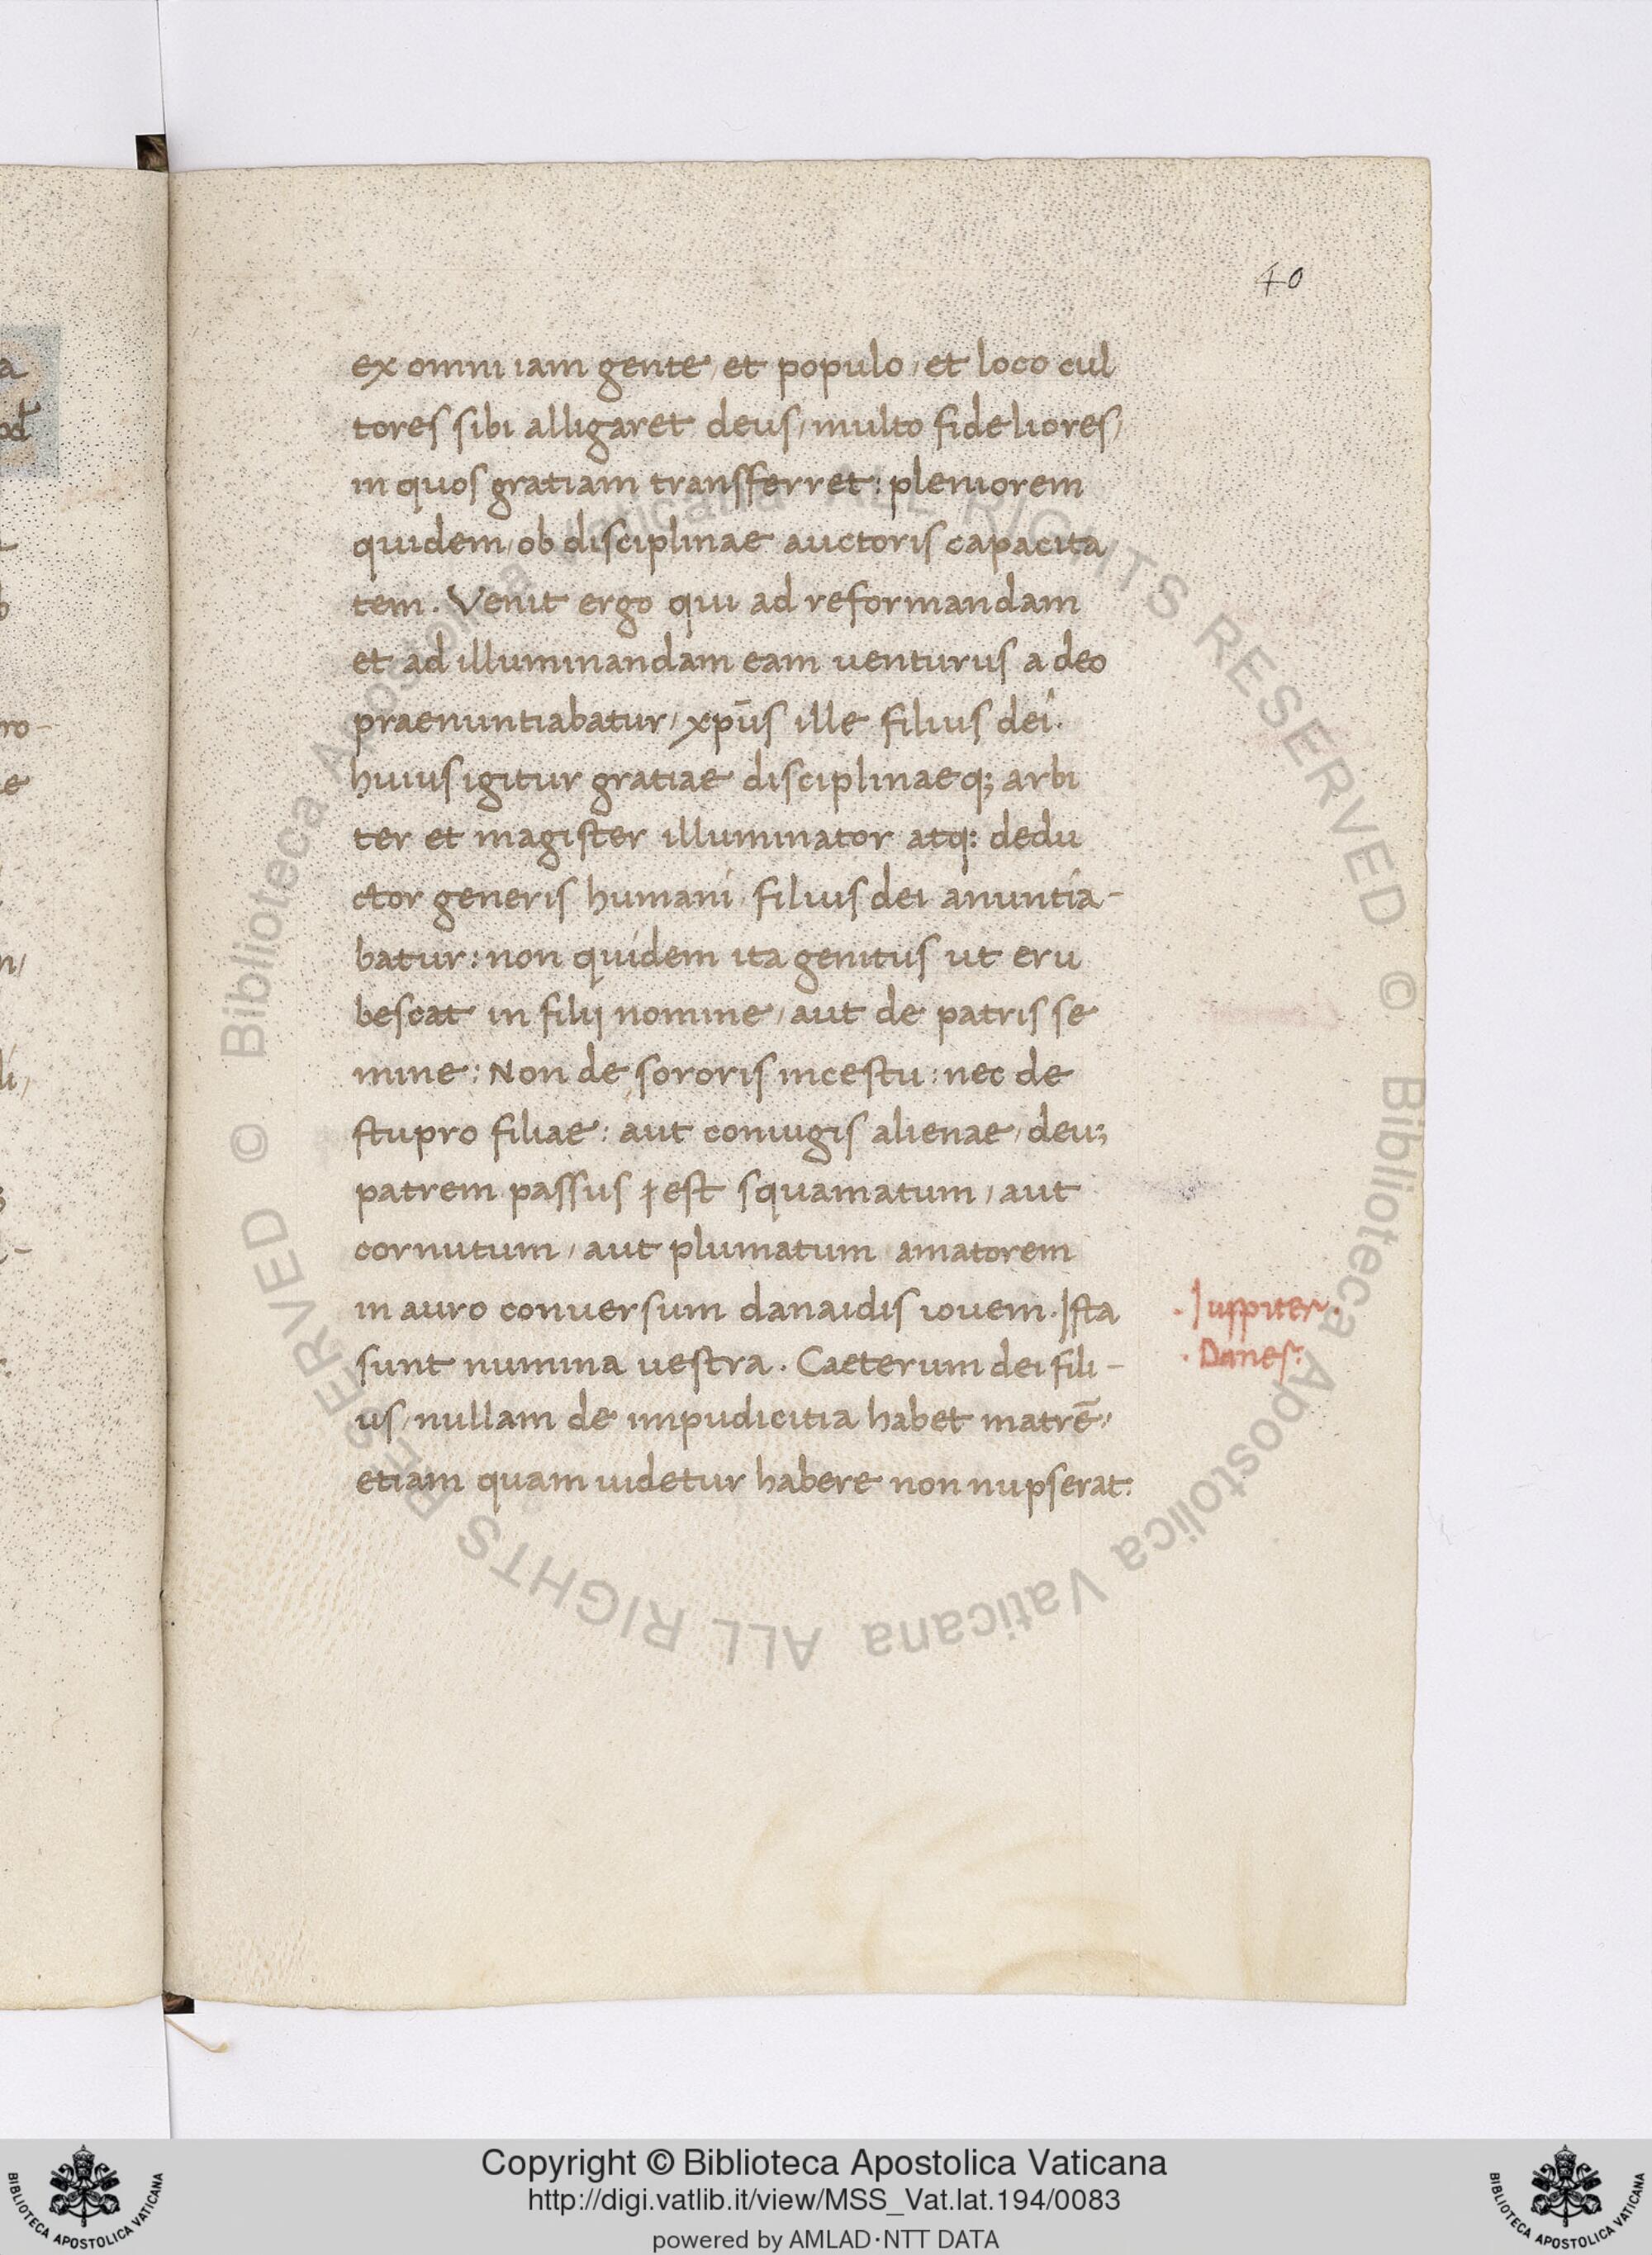 40
ex omni iam gente, et populo, et loco cul
tores sibi alligaret deus, multo fideliores,
in quos gratiam transferret: pleniorem
quidem, ob disciplinae auctoris capacita
tem. Venit ergo qui ad reformandam
et ad illuminandam eam venturus a deo
praenuntiabatur, xpūs ille filius dei.
huius igitur gratiae disciplinaeq; arbi
ter et magister illuminator atq: dedu
ctor generis humani filius dei anuntia-
batur: non quidem ita genitus ut eru
bescat in filij nomine, aut de patris se
mine: Non de sororis incestu: nec de
stupro filiae: aut coniugis alienae, deu;
patrem passus est squamatum, aut
cornutum, aut plumatum amatorem
in auro conversum danaidis iovem. Ista
sunt numina vestra. Caeterum dei fili-
us, nullam de impudicitia habet matrē,
etiam quam uidetur habere non nupserat:
. Iuppiter.
. Danes:
© Biblioteca Apostolica Vaticana ALL RIGHTS RESERVED © Biblioteca Apostolica Vaticana ALL RIGHTS RESERVED
Copyright © Biblioteca Apostolica Vaticana
http://digi.vatlib.it/view/MSS_Vat.lat.194/0083
powered by AMLAD·NTT DATA
BIBLIOTECA APOSTOLICA VATICANA
BIBLIOTECA APOSTOLICA VATICANA